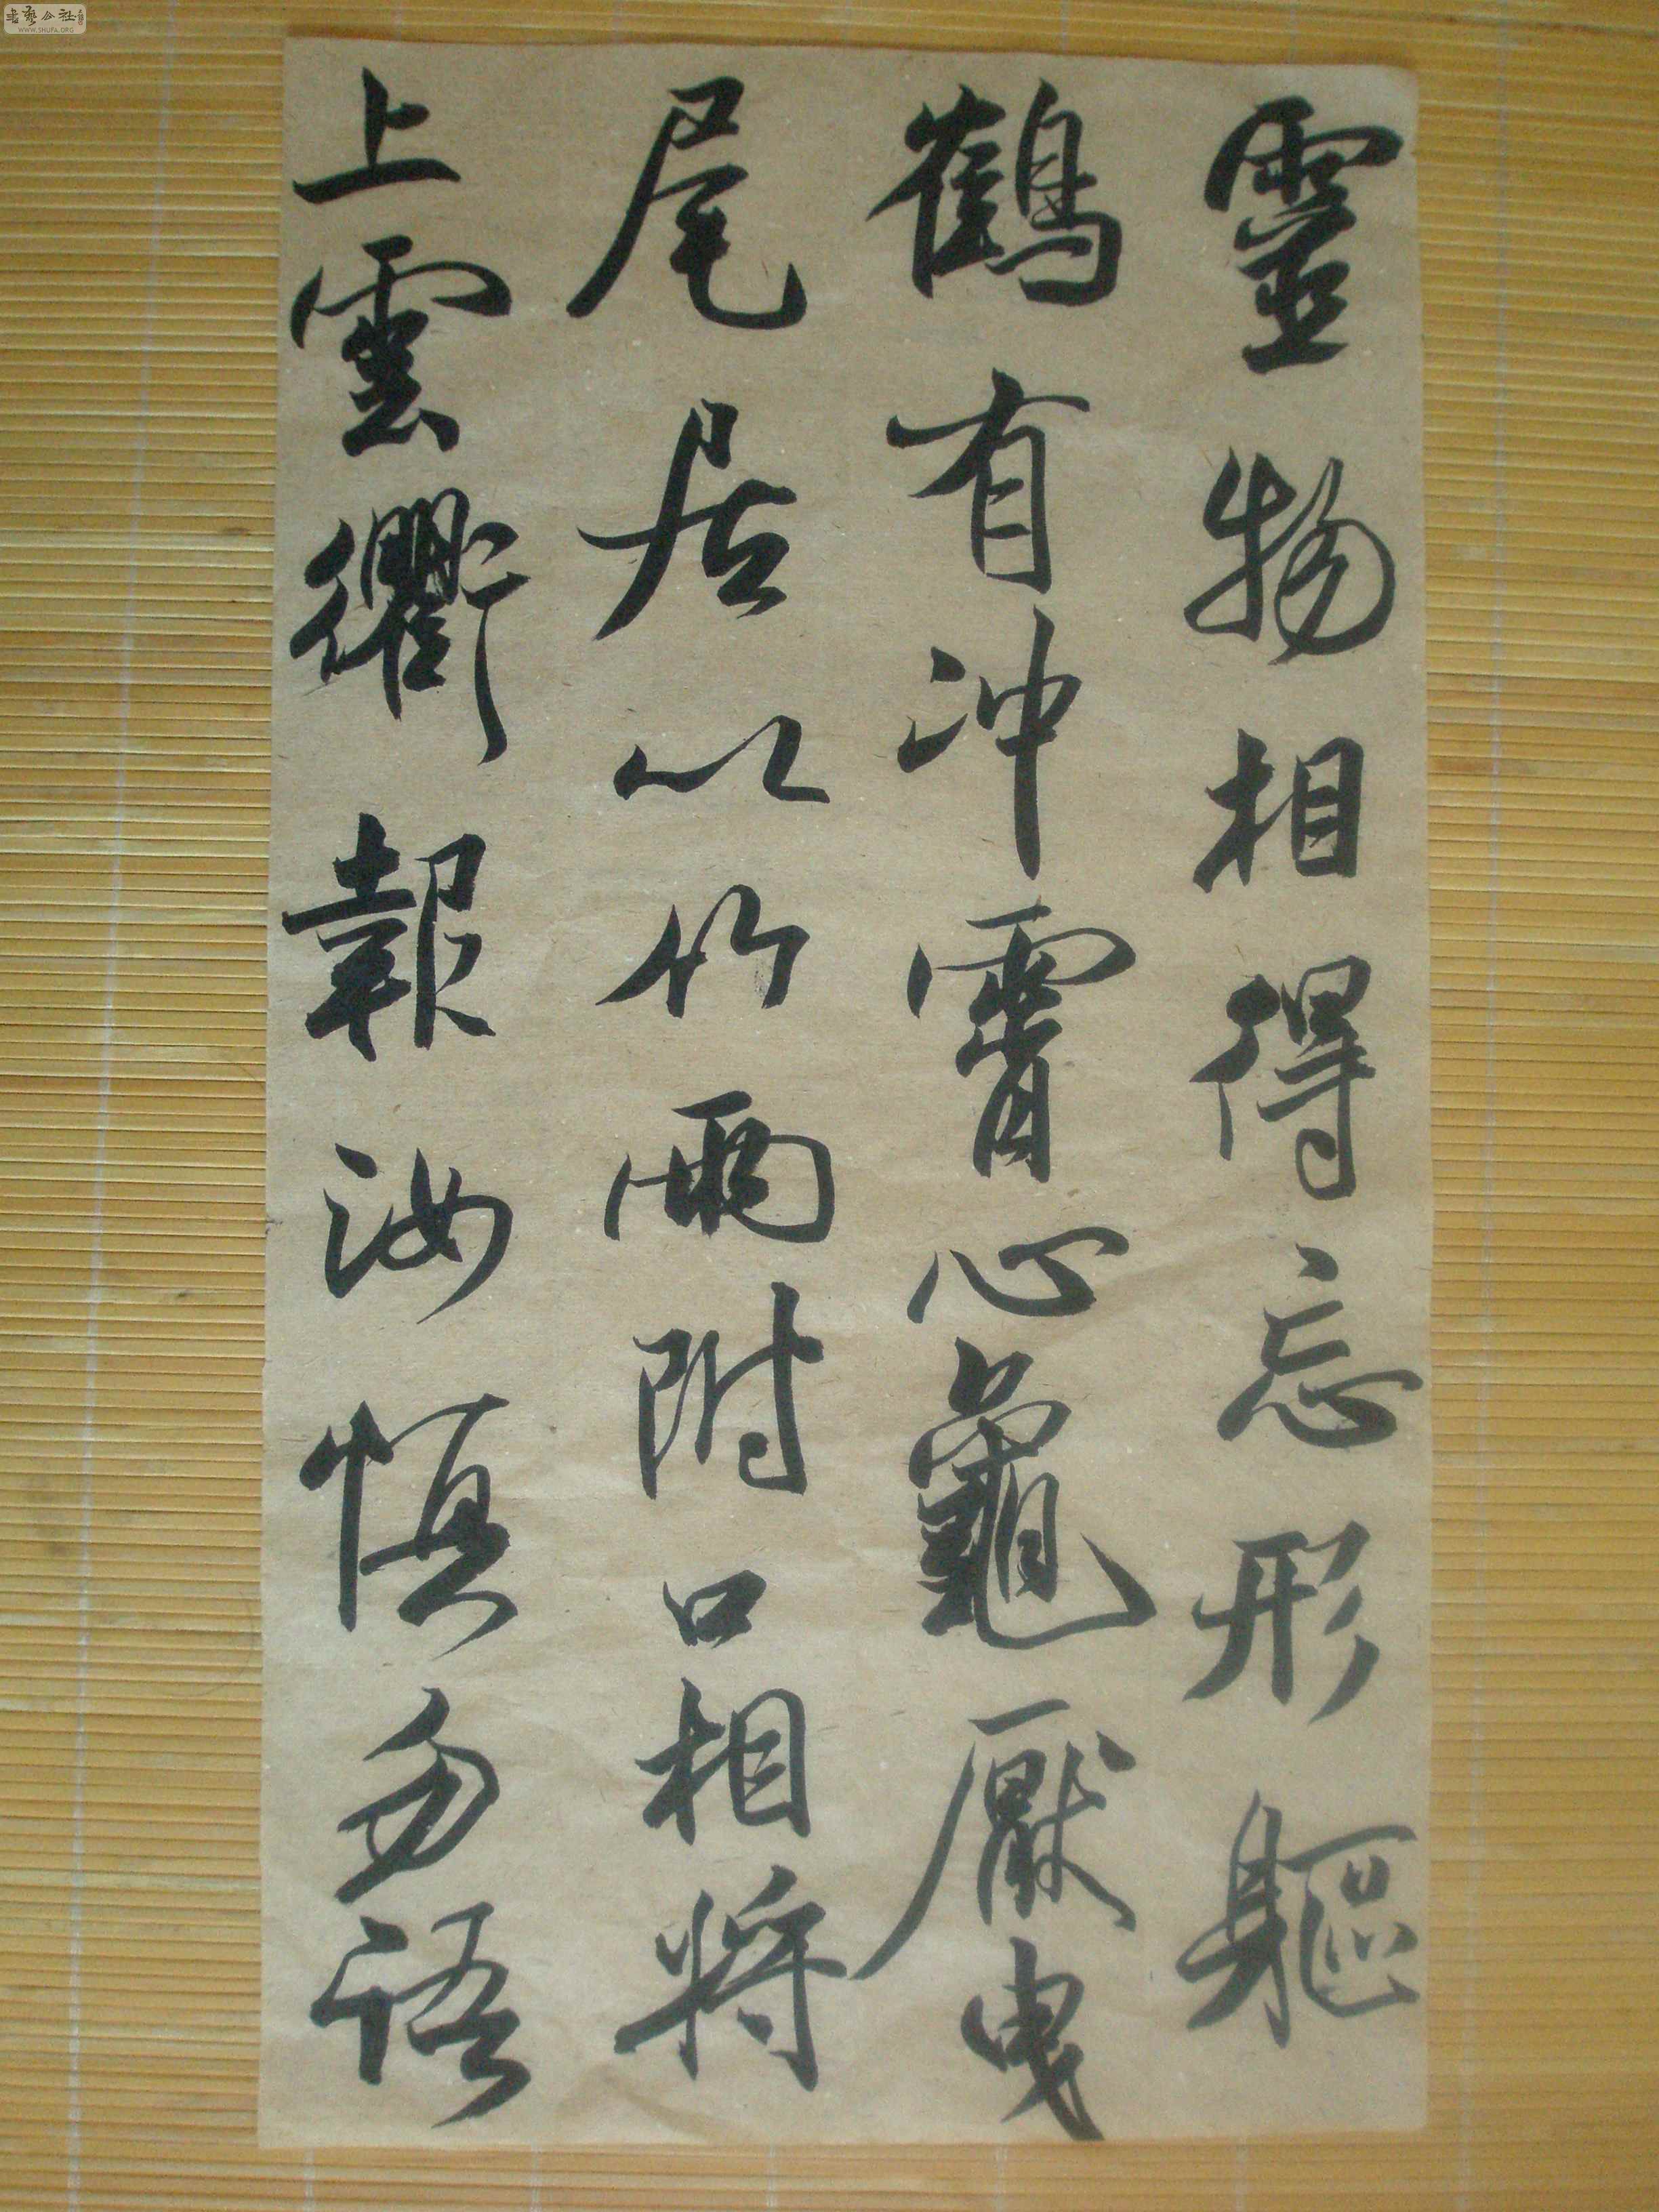 靈物相得忘形軀
鶴有沖霄心龜厭曳
尾居以竹兩附口相將
上雲衢報汝慎勿語
書藝公社
WWW.SHUFA.ORG